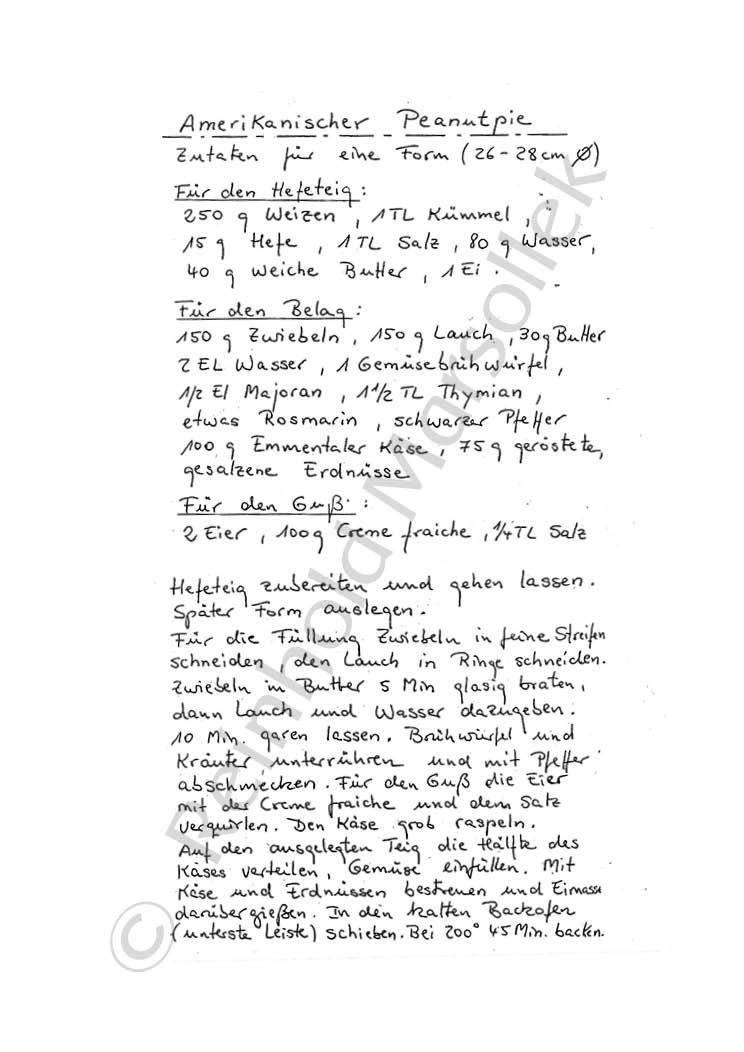 Amerikanischer Peanutpie
Zutaten für eine Form (26 - 28 cm Ø)
Für den Hefeteig:
250 g Weizen, 1 TL Kümmel,
15 g Hefe, 1 TL Salz, 80 g Wasser,
40 g weiche Butter, 1 Ei.
Für den Belag:
150 g Zwiebeln, 150 g Lauch, 30g Butter
2 EL Wasser, 1 Gemüsebrühwürfel,
1/2 El Majoran, 1 1/2 TL Thymian,
etwas Rosmarin, schwarzer Pfeffer
100 g Emmentaler Käse, 75 g geröstete,
gesalzene Erdnüsse
Für den Guß:
2 Eier, 100g Creme fraiche, 1/4 TL Salz
Hefeteig zubereiten und gehen lassen.
Später Form auslegen.
Für die Füllung Zwiebeln in feine Streifen
schneiden, den Lauch in Ringe schneiden.
Zwiebeln in Butter 5 Min glasig braten,
dann Lauch und Wasser dazugeben.
10 Min. garen lassen. Brühwürfel und
Kräuter unterrühren und mit Pfeffer
abschmecken. Für den Guß die Eier
mit der Creme fraiche und dem Salz
verquirlen. Den Käse grob raspeln.
Auf den ausgelegten Teig die Hälfte des
Käses verteilen, Gemüse einfüllen. Mit
Käse und Erdnüssen bestreuen und Eimasse
darübergießen. In den kalten Backofen
(unterste Leiste) schieben. Bei 200° 45 Min. backen.
© Reinhold Marsollek